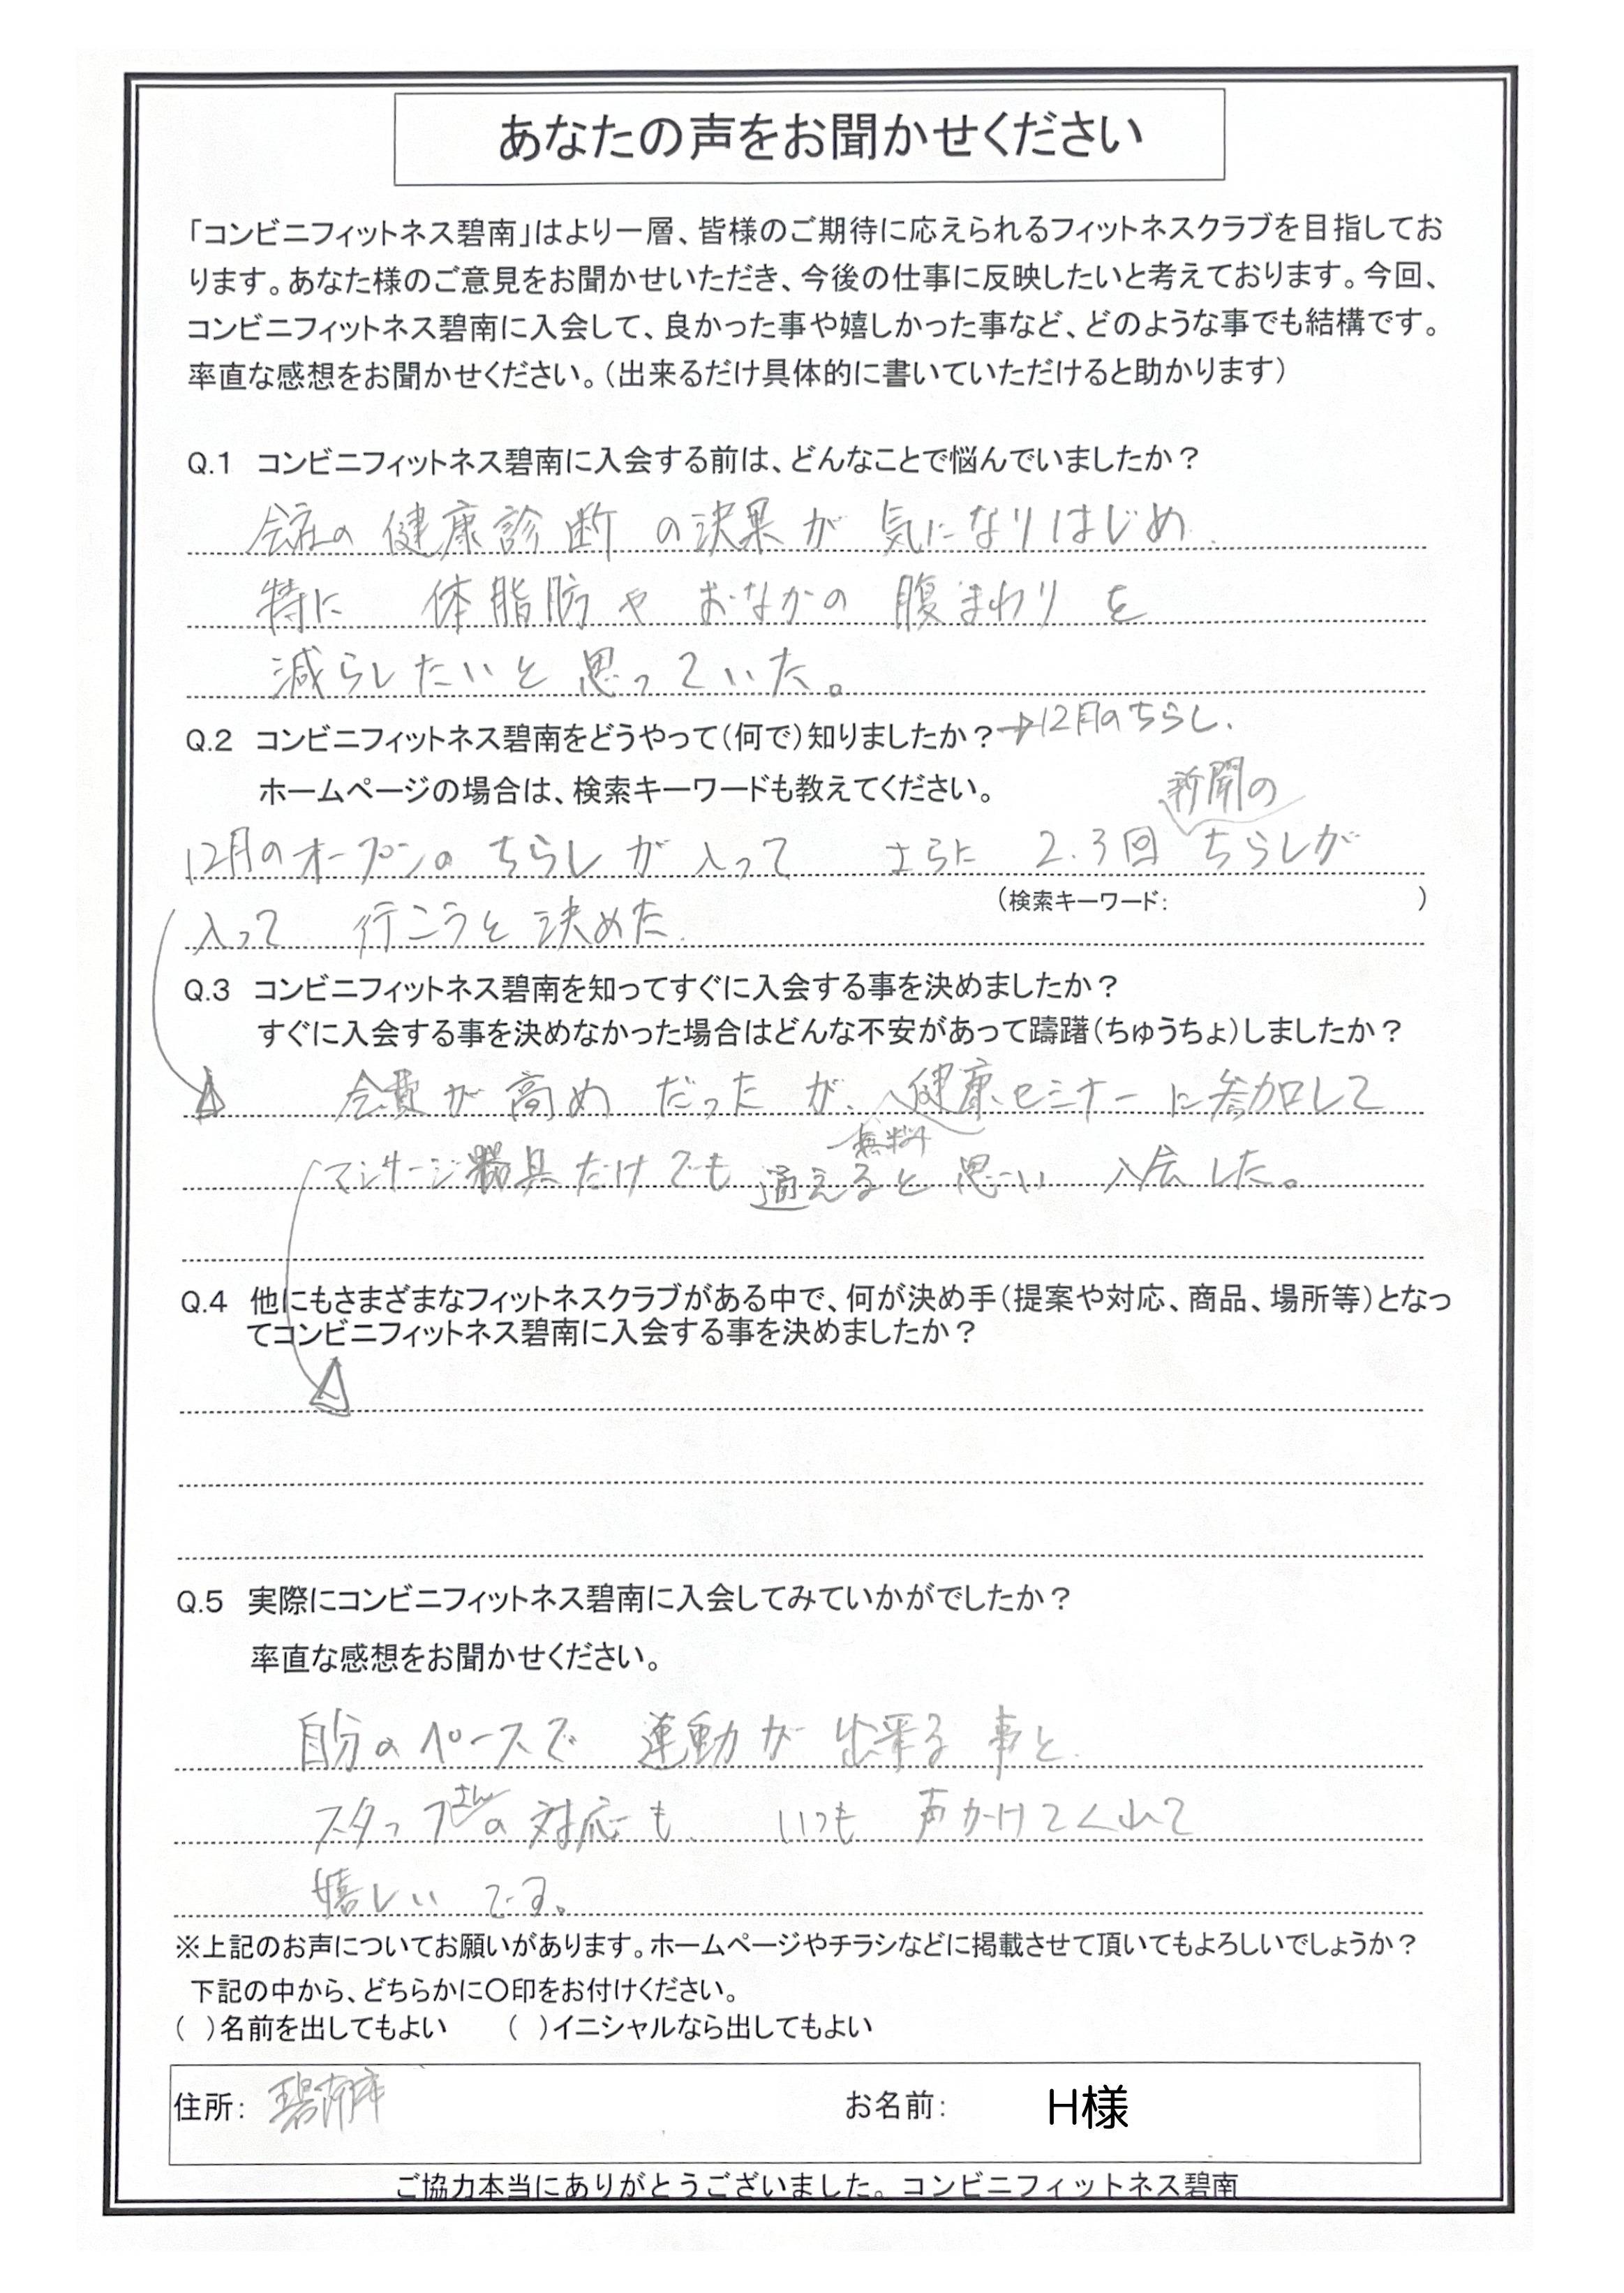 あなたの声をお聞かせください
「コンビニフィットネス碧南」はより一層、皆様のご期待に応えられるフィットネスクラブを目指してお
ります。あなた様のご意見をお聞かせいただき、今後の仕事に反映したいと考えております。今回、
コンビニフィットネス碧南に入会して、良かった事や嬉しかった事など、どのような事でも結構です。
率直な感想をお聞かせください。(出来るだけ具体的に書いていただけると助かります)
Q.1 コンビニフィットネス碧南に入会する前は、どんなことで悩んでいましたか?
会社の健康診断の決果が気になりはじめ.
特に 体脂肪や おなかの 腹まわりを
減らしたいと思っていた。
Q.2 コンビニフィットネス碧南をどうやって(何で)知りましたか?→12月のちらし.
ホームページの場合は、検索キーワードも教えてください。
新聞の
12月のオープンのちらしが入って さらに 2.3回 ちらしが
(検索キーワード: )
入って 行こうと決めた.
Q.3 コンビニフィットネス碧南を知ってすぐに入会する事を決めましたか?
すぐに入会する事を決めなかった場合はどんな不安があって躊躇(ちゅうちょ)しましたか?
会費が高めだったが、健康セミナーに参加して
無料
マッサージ器具だけでも通えると思い 入会した。
Q.4 他にもさまざまなフィットネスクラブがある中で、何が決め手(提案や対応、商品、場所等)となっ
てコンビニフィットネス碧南に入会する事を決めましたか?
Q.5 実際にコンビニフィットネス碧南に入会してみていかがでしたか?
率直な感想をお聞かせください。
自分のペースで 運動が出来る事と.
さん
スタッフの対応も、いつも 声かけてくれて
嬉しいです。
※上記のお声についてお願いがあります。ホームページやチラシなどに掲載させて頂いてもよろしいでしょうか?
下記の中から、どちらかに〇印をお付けください。
( )名前を出してもよい ( )イニシャルなら出してもよい
住所: 碧南市 お名前: H様
ご協力本当にありがとうございました。コンビニフィットネス碧南